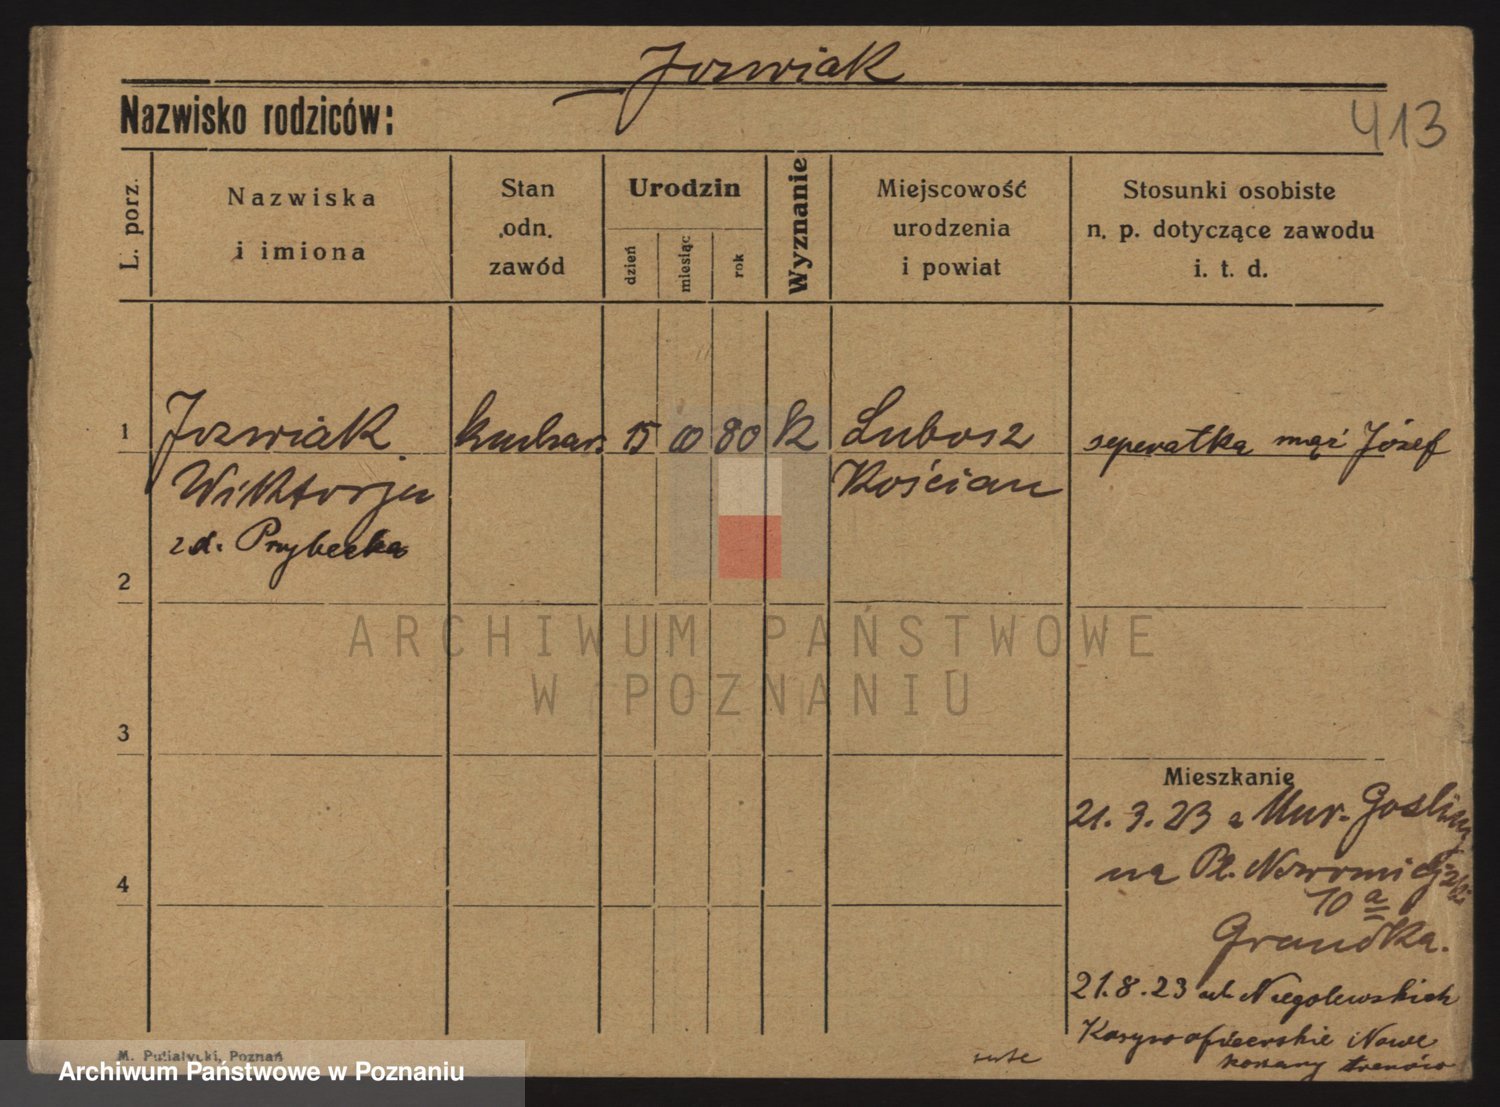 Jozwiak
Nazwisko rodziców:
413
L. porz.
Nazwiska
i imiona
Stan
odn.
zawód
Urodzin
dzień
miesiąc
rok
Wyznanie
Miejscowość
urodzenia
i powiat
Stosunki osobiste
n. p. dotyczące zawodu
i. t. d.
1
Jozwiak
kuchar.
15
10
80
k
Lubosz
seperatka mąż Józef
Wiktorja
Kościan
z d. Przybecka
2
ARCHIWUM PAŃSTWOWE
W POZNANIU
3
Mieszkanie
21.3.23 z Mur. Goslin
na Pl. Nowomiejski
10 a
4
Grandka.
21.8.23 ul. Niegolewskich
Kasyno oficerskie Nowe
koszary trenów
M. Putiatycki, Poznań
Archiwum Państwowe w Poznaniu